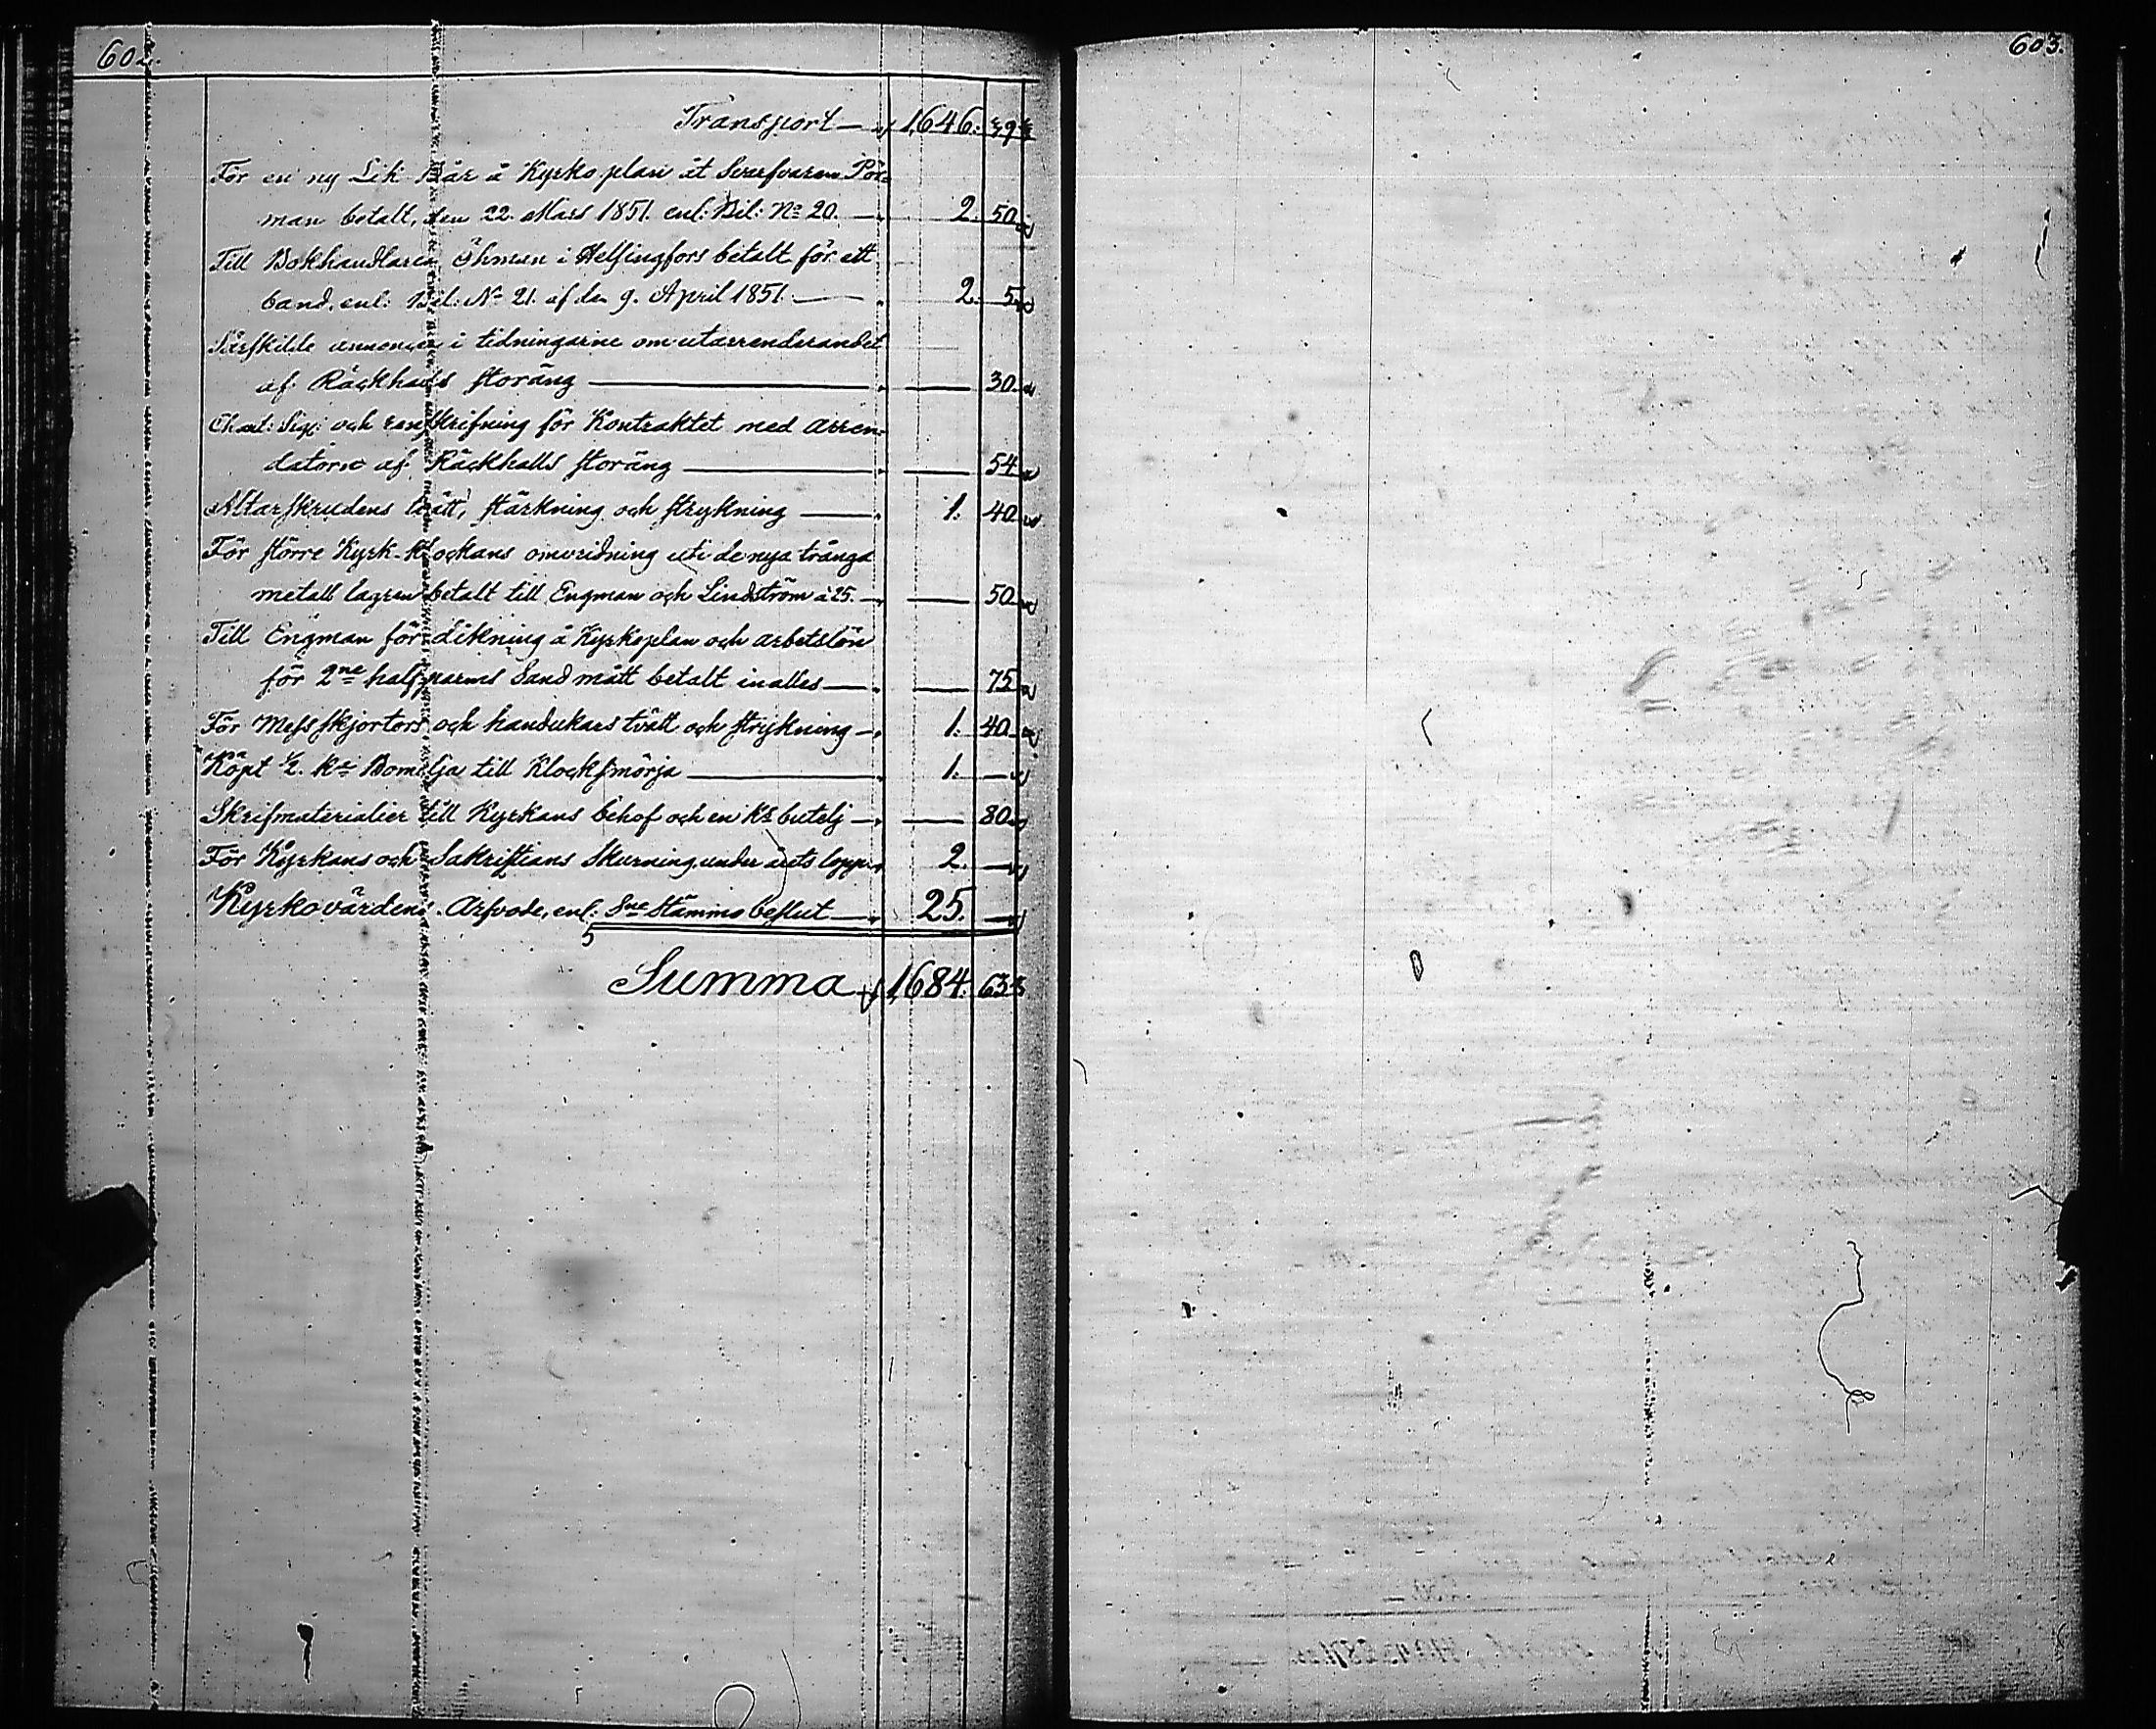 602.
Transport 1646. 39
För en ny Lik Bår å Kyrko plan åt Svarfvaren Pör-
man betalt, den 22. Mars 1851. enl: Bil: No 20. 2. 50.
Till Bokhandlaren Öhman i Helsingfors betalt för ett
band, enl: Bil: No 21. af den 9. April 1851. 2. 5.
Särskilde annoncer i tidningarne om utarrenderandet
af Räckhalls storäng 30.
Chart: Sig: och renskrifning för Kontraktet med arren-
datorn af Räckhalls storäng 54.
Altarskrudens tvätt, stärkning och strykning 1. 40.
För större Kyrk-Klockans omvridning uti de nya trånga
metall lagren betalt till Engman och Lindström à 25. 50.
Till Engman för dikning å Kyrkoplan och arbetslön
för 2ne halfparms Sand mått betalt inalles 75.
För Mess skjortors och handukars tvätt och strykning 1. 40.
Köpt 1/2. ka Bomolja till Klocksmörja 1. —
Skrifmaterialier till Kyrkans behof och en Ks butelj 80.
För Kyrkans och Sakristians Skurning under årets lopp 2. —
Kyrkovärdens Arfvode, enl: Sne Stämmo beslut 25. —
Summa 1684. 63
603.